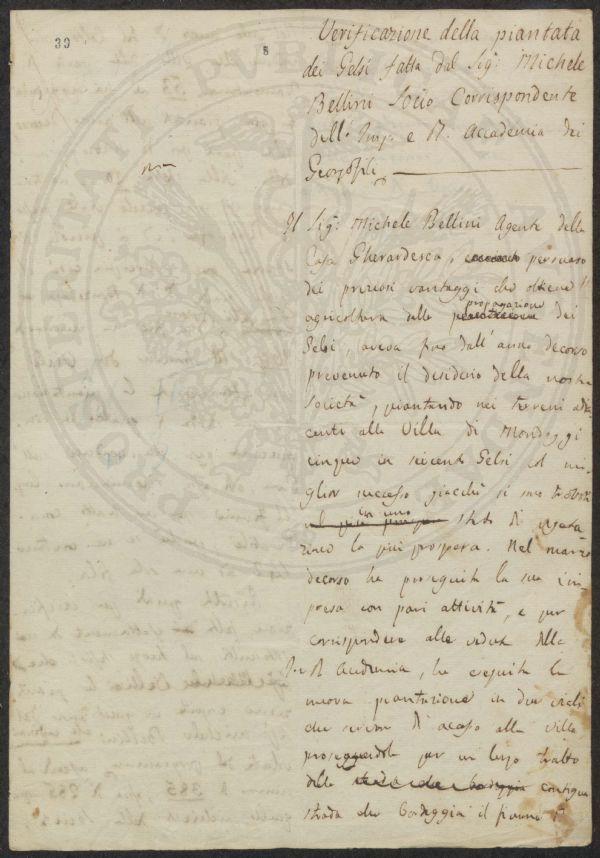 39
8
Verificazione della piantata
dei Gelsi fatta dal Sig.r Michele
Bellini Socio Corrispondente
dell'Imp. e R. Accademia dei
Georgofili
Il Sig.r Michele Bellini Agente della
Casa Gherardesca, persuaso
dei preziosi vantaggi che ottiene l'
agricoltura dalla propagazione dei
Gelsi, aveva fino dall'anno decorso
prevenuto il desiderio della nostra
Società, piantando nei terreni adia
centi alla Villa di Mondeggi
cinque in seicento Gelsi col mi
glior successo giacchè si sono trovati
in uno stato di vegeta
zione la più prospera. Nel marzo
decorso ha proseguita la sua im
presa con pari attività, e per
corrispondere alle vedute della
I. e R. Accademia, ha eseguita la
nuova piantazione in due viali
che servono di accesso alla villa
proseguendola per un lungo tratto
della contigua
strada che costeggia il fiume
PROSPERITATI PUBLICAE